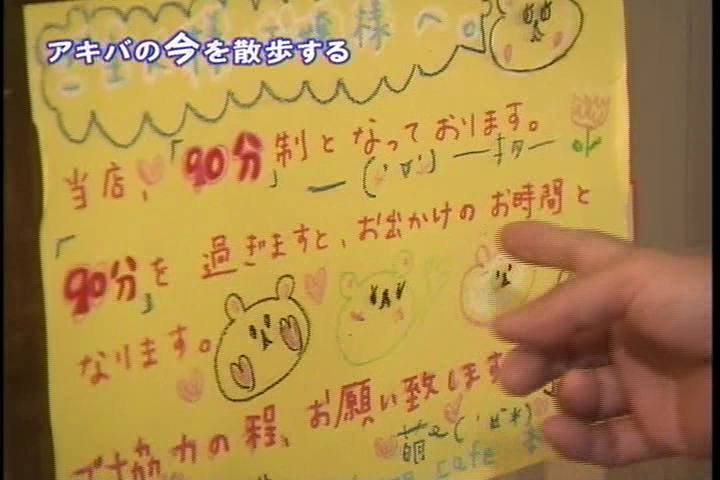 アキバの今を散歩する
ご主人様 お嬢様へ。
当店、「90分」制となっております。
「90分」を過ぎますと、お出かけのお時間と
なります。
ご協力の程、お願い致します
萌e
cafe